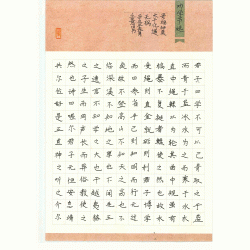 君子曰学不可以已青取之于蓝
而青于蓝冰水为之而寒于水木
直中绳輮以为轮其曲中规虽有
槁暴不复挺者輮使之然也故木
受绳则直金就砺则利君子博学
而日参省乎己则知明而行无过
矣故不登高山不知天之高也不
临深溪不知地之厚也不闻先王
之遗言不知学问之大也干越夷貉
之子生而同声长而异俗教使之
然也诗曰嗟尔君子无恒安息靖
共尔位好是正直神之听之介尔